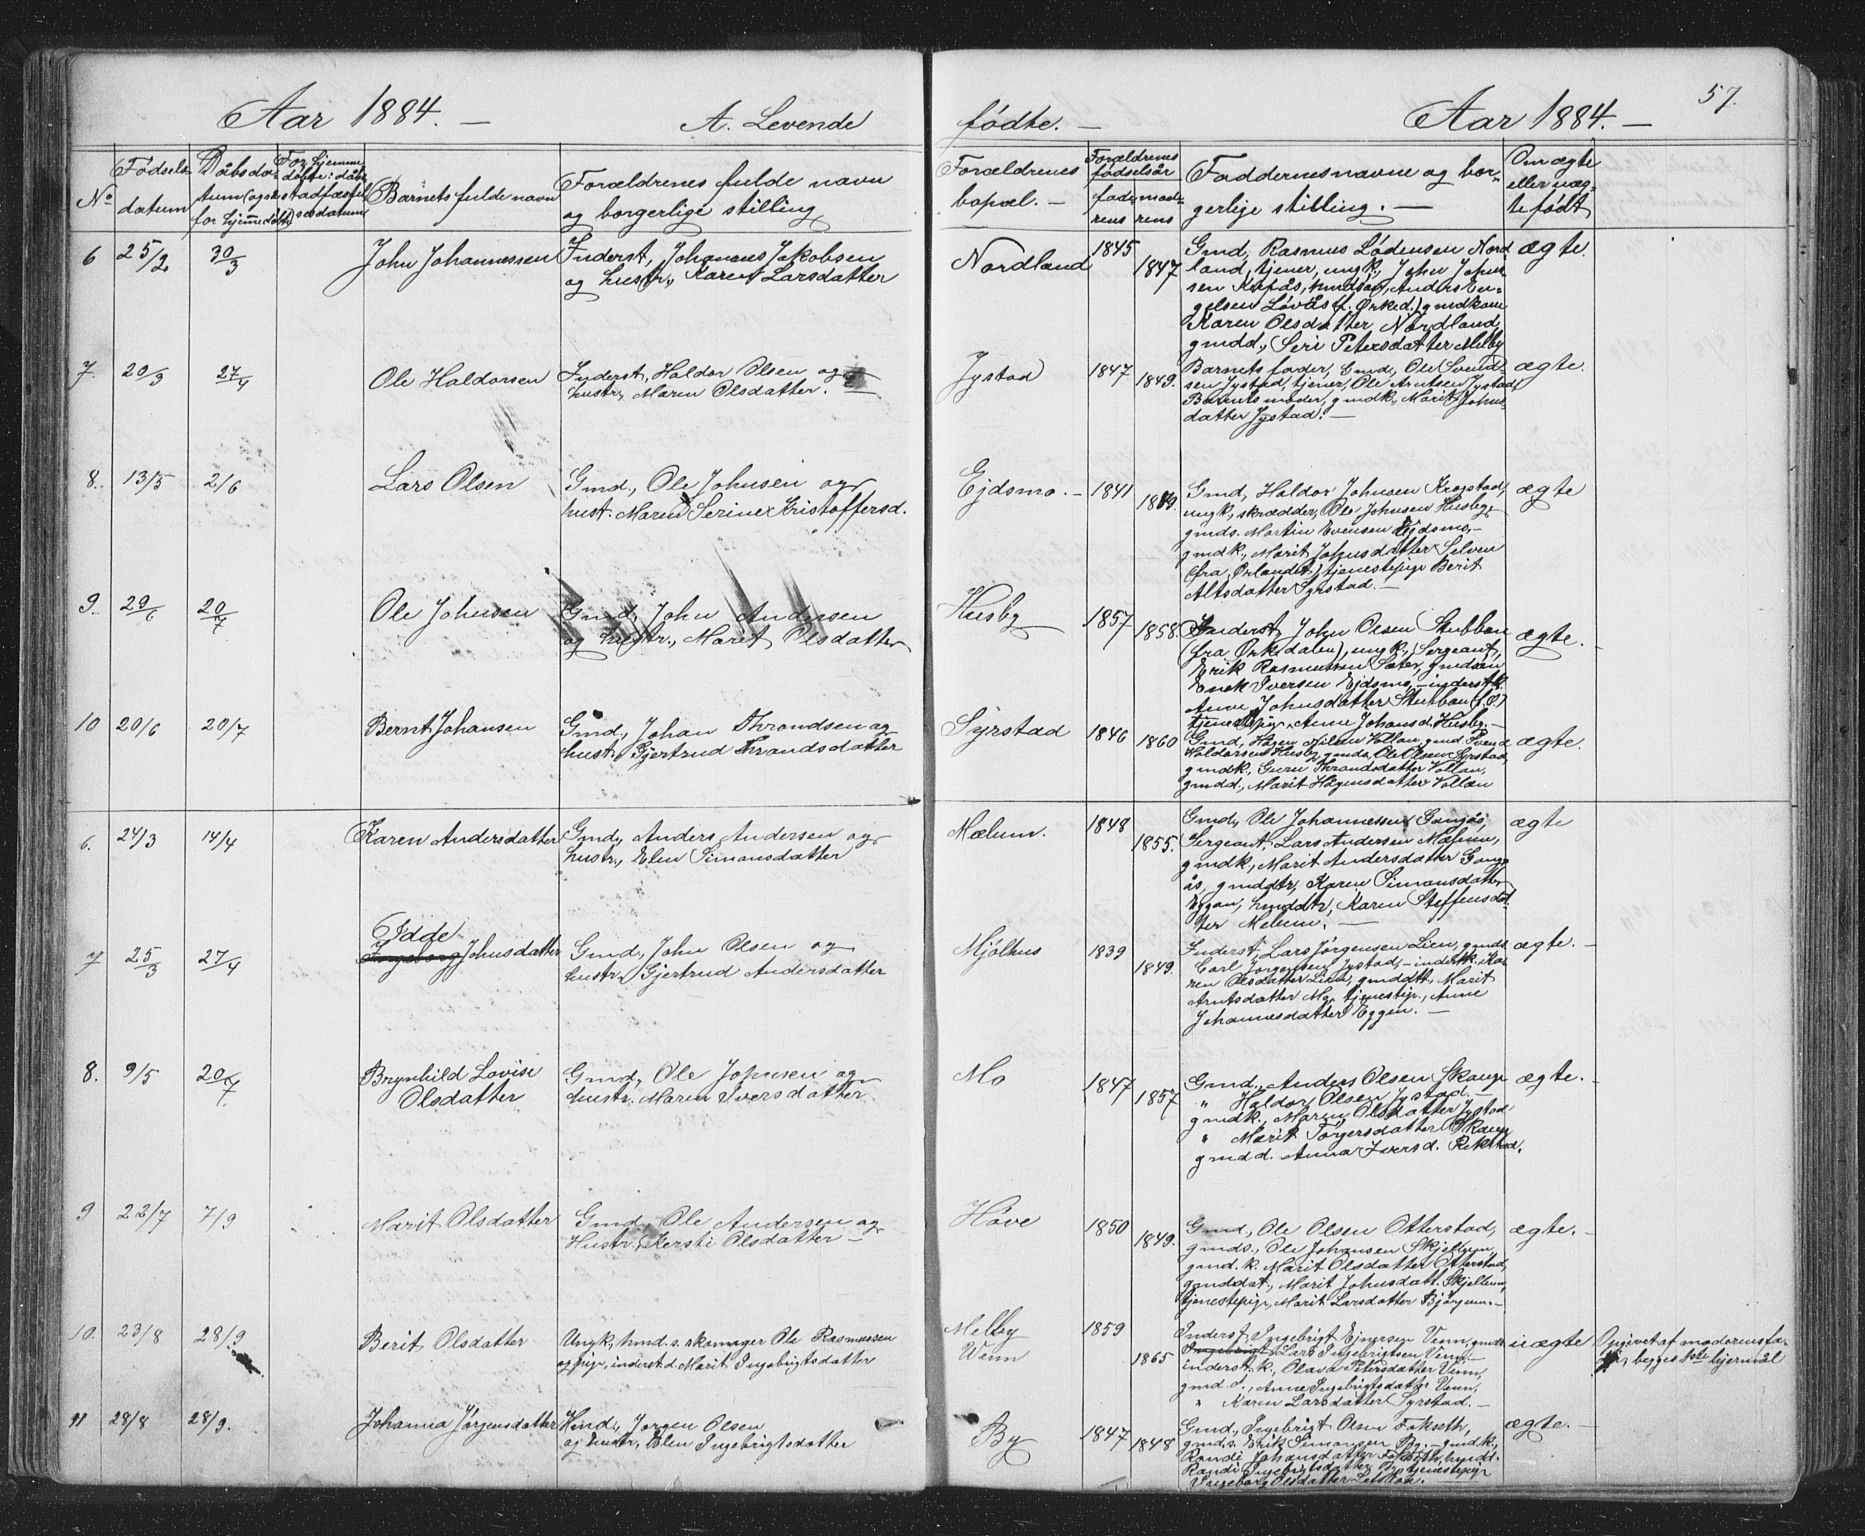 Aar 1884. — A. Levende
fødte. — Aar 1884. — 57.
No
Fødsels-
datum
Dåbsda-
tum (også
for hjemmedøbt)
For hjemme
døbte: dåbs
stadfæstel
sesdatum
Barnets fulde navn
Forældrenes fulde navn
og borgerlige stilling
Forældrenes
bopæl. —
Forældrenes
fødselsår
fade-
rens
mode-
rens
Faddernes navne og bor-
gerlige stilling. —
Om ægte
eller uæg-
te født
6 25/2 30/3 John Johannessen
Inderst, Johannes Jakobsen
og hustr., Karen Larsdatter
Nordland 1845 1847
Gmd, Rasmus Lødensen Nord
land, tjener, ungk., John Johns
sen
gelsen Løvås (f. Ørked.) gmdkone
Karen Olsdatter Nordland,
gmdd., Seri Petersdatter Melby
ægte.
7. 20/3 27/4 Ole Haldorsen
Inderst, Haldor Olsen og
hustr, Maren Olsdatter. —
Jystad 1847 1849.
Barnets fader, Gmd, Ole Svend-
sen Jystad, tjener, Ole Arntsen Jystad,
Barnets moder, gmdk., Marit Johns-
datter Jystad. —
ægte.
8. 13/5 2/6 Lars Olsen
Gmd., Ole Johnsen og
hust. Maren Serine Kristoffersd.
Ejdsmo. — 1841 1849.
Gmd, Haldor Johnsen Krogstad,
ungk, skrædder, Ole Johnsen Husby,
gmds. Martin Evensen Ejdsmo, —
gmdk., Marit Johnsdatter Selven
(fra Ørlandet), tjenestepige Berit
Altsdatter Syrstad. —
ægte
9. 29/6 20/7 Ole Johnsen
Gmd, John Andersen
og hustr., Marit Olsdatter
Husby 1857 1858.
Inderst, John Olsen Stubban
(fra Ørkedalen), ungk., Sergeant,
Erik Rasmussen Sæter, gmdsøn
Enek Iversen Ejdsmo, — inderstk.
Anne Johnsdatter Stubban (f. Ø.)
tjenestepig, Anne Johansd. Husby. —
ægte.
10 20/6 20/7 Bernt Johansen
Gmd, Johan Throndsen og
hust. Gjertrud Thrandsdatter
Syrstad 1846 1860
Gmd, Hågen Nilsen Vollan, gmd Svend
Haldorsen Husby, gmds, Ole Olsen Syrstad,
gmdk, Guru Thrandsdatter Vollan,
gmdd., Marit Hågensdatter Vollan
ægte.
6. 24/3 14/4 Karen Andersdatter
Gmd, Anders Andersen og
hustr., Elen Simonsdatter
Mælum. 1848 1855.
Gmd, Ole Johannessen Gangås,
Sergeant, Lars Andersen Mælum,
gmdk., Marit Andersdatter Gang-
ås, gmddtr, Karen Simonsdatter
Eggan, hmddtr, Karen Steffensdat-
ter Melum. —
ægte
7 25/3 27/4 Idde
Ingeborg Johnsdatter
Gmd, John Olsen og
hustr. Gjertrud Andersdatter
Mjølhus 1839 1849.
Inderst, Lars Jørgensen Lien, gmds
Carl Jørgensen Jystad, — inderstk. Ka-
ren Olsdatter Lien, gmddtt, Marit
Arntsdatter Mo, tjenestepi., Anne
Johannesdatter Eggen. —
ægte. —
8. 9/5 20/7 Brynhild Lovise
Olsdatter
Gmd, Ole Johnsen og
hustr. Maren Iversdatter
Mo 1847 1857
Gmd., Anders Olsen Skauge
" Haldor Olsen Jystad. —
gmdk., Maren Olsdatter Jystad
" Marit Torgersdatter Skauge
gmdd. Anna Iversd. Rikstad.
ægte.
9 22/7 7/9 Marit Olsdatter
Gmd, Ole Andersen og
Hustr. Kersti Olsdatter —
Høve 1850 1849.
Gmd., Ole Olsen Otterstad,
gmds., Ole Johansen Skjellum,
gmd. k. Marit Olsdatter Otterstad,
gmddat., Marit Johnsdatt. Skjellum,
tjenestepige, Marit Larsdatter Bjørgum. —
ægte. —
10. 23/8 28/9 Berit Olsdatter
Ungk, hmd. s. skomager Ole Rasmussen
og pige, inderst d. Marit Ingebrigtsdatter
Melby
Wenn
1859 1865
Inderst, Ingebrigt Venn, gmds.
Ingebrigt Lars Ingebrigtsen Venn, —
inderst k., Olava Petersdatter Venn,
gmd d., Anne Ingebrigtsdatter Venn,
" Karen Larsdatter Syrstad. —
uægte
Opgivet af moderens fa-
begges 1ste lejermål
11 28/8 28/9. Johanna Jørgensdatter
Hmd., Jørgen Olsen
og hustr, Elen Ingebrigtsdatter
By 1847 1848
Gmd, Ingebrigt Olsen Fækseth,
gmds. Erik Simonsen By. — gmdk,
Randi Johansdatter
Randi Ingebrigtsdatter By, tjenestepige
Ingeborg Olsdatter
ægte. —